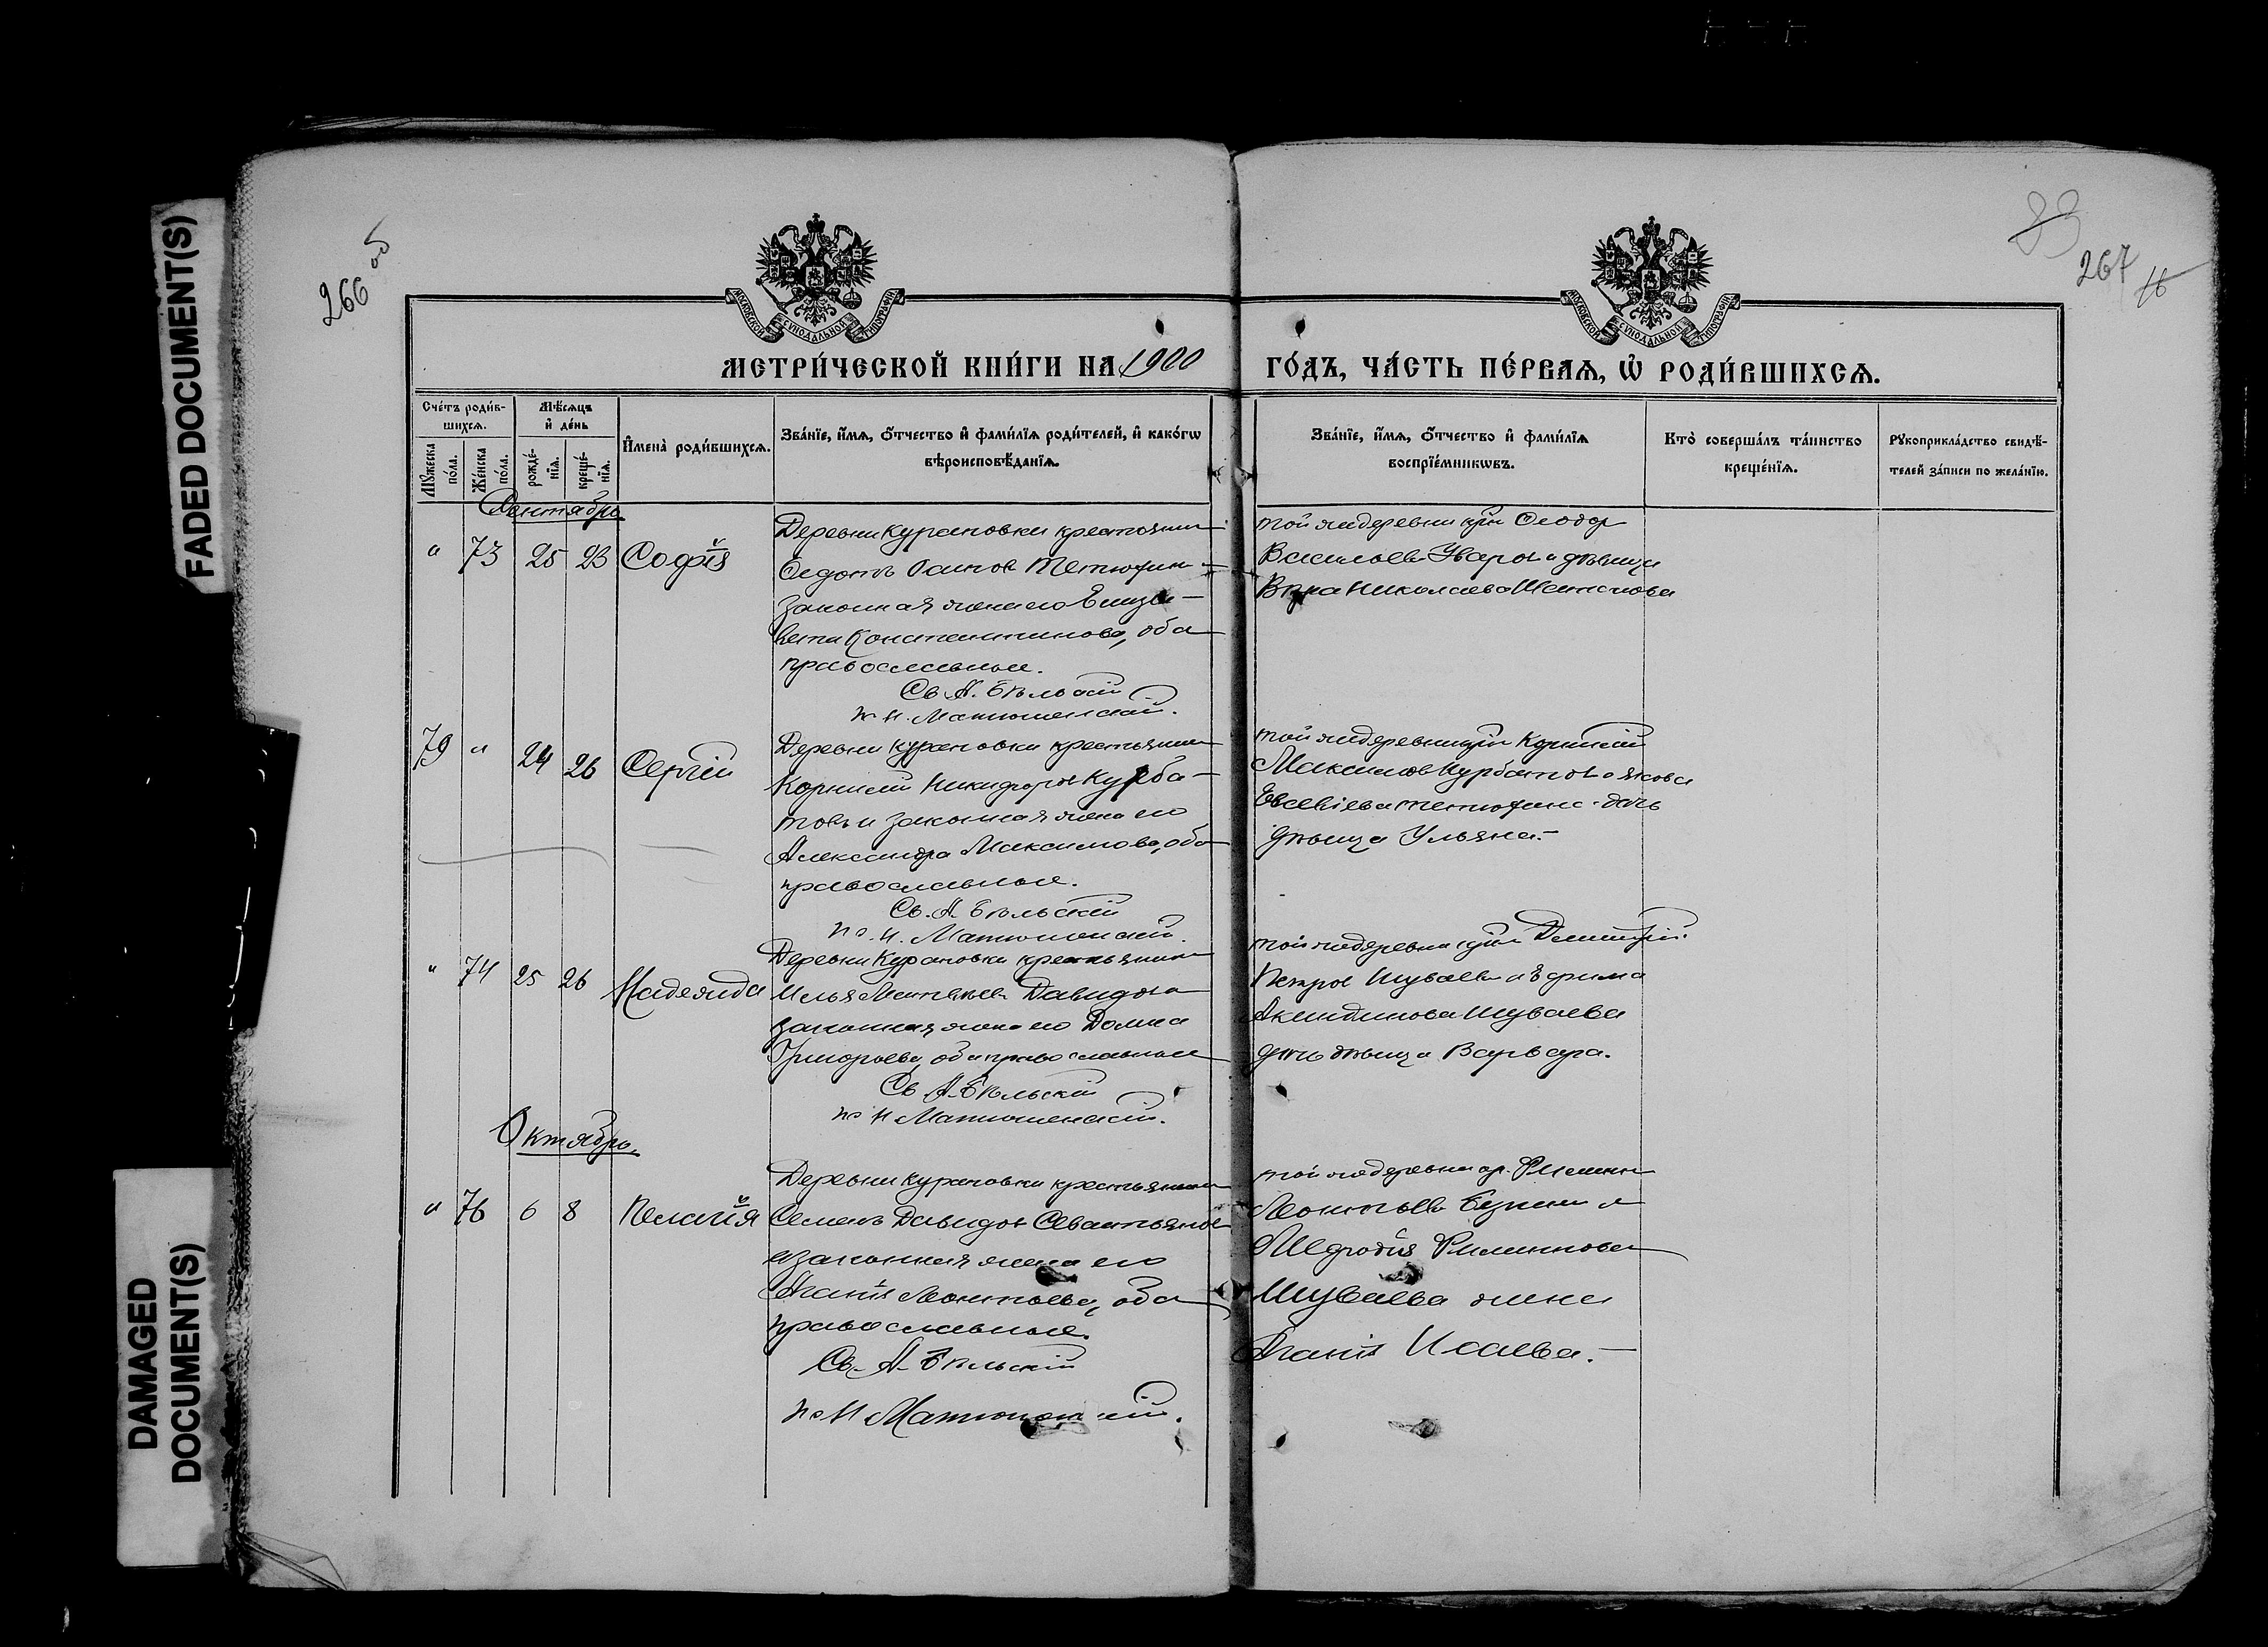 FADED DOCUMENT(S)
DAMAGED
DOCUMENT(S)
266 об
89
267
МОСКОВСКОЙ СУНОДАЛЬНОЙ ТИПОГРАФІИ
МОСКОВСКОЙ СУНОДАЛЬНОЙ ТИПОГРАФІИ
МЕТРИ́ЧЕСКОЙ КНИ́ГИ НА 1900 ГО́ДЪ, ЧА́СТЬ ПЕ́РВАѦ, Ѡ҆ РОДИ́ВШИХСѦ.
Сче́тъ роди́в-
шихсѧ.
Мꙋ́жеска
по́ла.
Же́нска
по́ла.
Мѣ́сѧцъ
и҆ де́нь
рожде́-
нїѧ.
креще́-
нїѧ.
И҆мена̀ роди́вшихсѧ.
Зва́нїе, и҆́мѧ, ѻ҆́тчество и҆ фами́лїѧ роди́телей, и҆ како́гѡ
вѣроисповѣ́данїѧ.
Зва́нїе, и҆́мѧ, ѻ҆́тчество и҆ фами́лїѧ
воспрїе́мникѡвъ.
Кто̀ соверша́лъ та́инство
креще́нїѧ.
Рꙋкоприкла́дство свидѣ́-
телей за́писи по жела́нїю.
Сентябрь
" 73 25 23 Софія
Деревни Курановки крестьянин
Федотъ Тетюхин
законная жена его Елиза-
вета Константинова, оба
православные.
Св. А. Бѣльскій
пс. Н.
той же деревни кр Феодор
Васильев Уваров и дѣвица
Вѣра Николаева
79 " 24 26 Сергій
Деревни Курановки крестьянин
Корнилій Никифоров Курба-
товъ и законная жена его
Александра Максимова, оба
православные.
Св. А. Бѣльскій
пс. Н.
той же деревни кр Корнилій
Максимов Курбатов и Якова
Евсевіева Тетюхина дочь
дѣвица Ульяна.
" 74 25 26 Надежда
Деревни Курановки крестьянин
Илья Давидов и
законная жена его Домна
Григорьева, оба православные
Св. А. Бѣльскій
пс Н
той же деревни кр Димитрій
Петров Шуваев и Ефима
Акиндинова Шуваева
дочь дѣвица Варвара.
Октябрь.
" 76 6 8 Пелагія
Деревни Курановки крестьянин
Семенъ Давидов Севастьянов
и законная жена его
Агапія Леонтьева, оба
православные.
Св. А. Бѣльскій
пс Н
той же деревни кр. Филипп
Леонтьев и
Филиппова
Шуваева жена
Агапія Исаева.